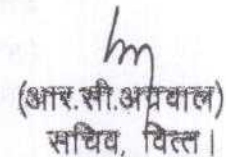 (आर.सी.अग्रवाल)
सचिव, वित्त।